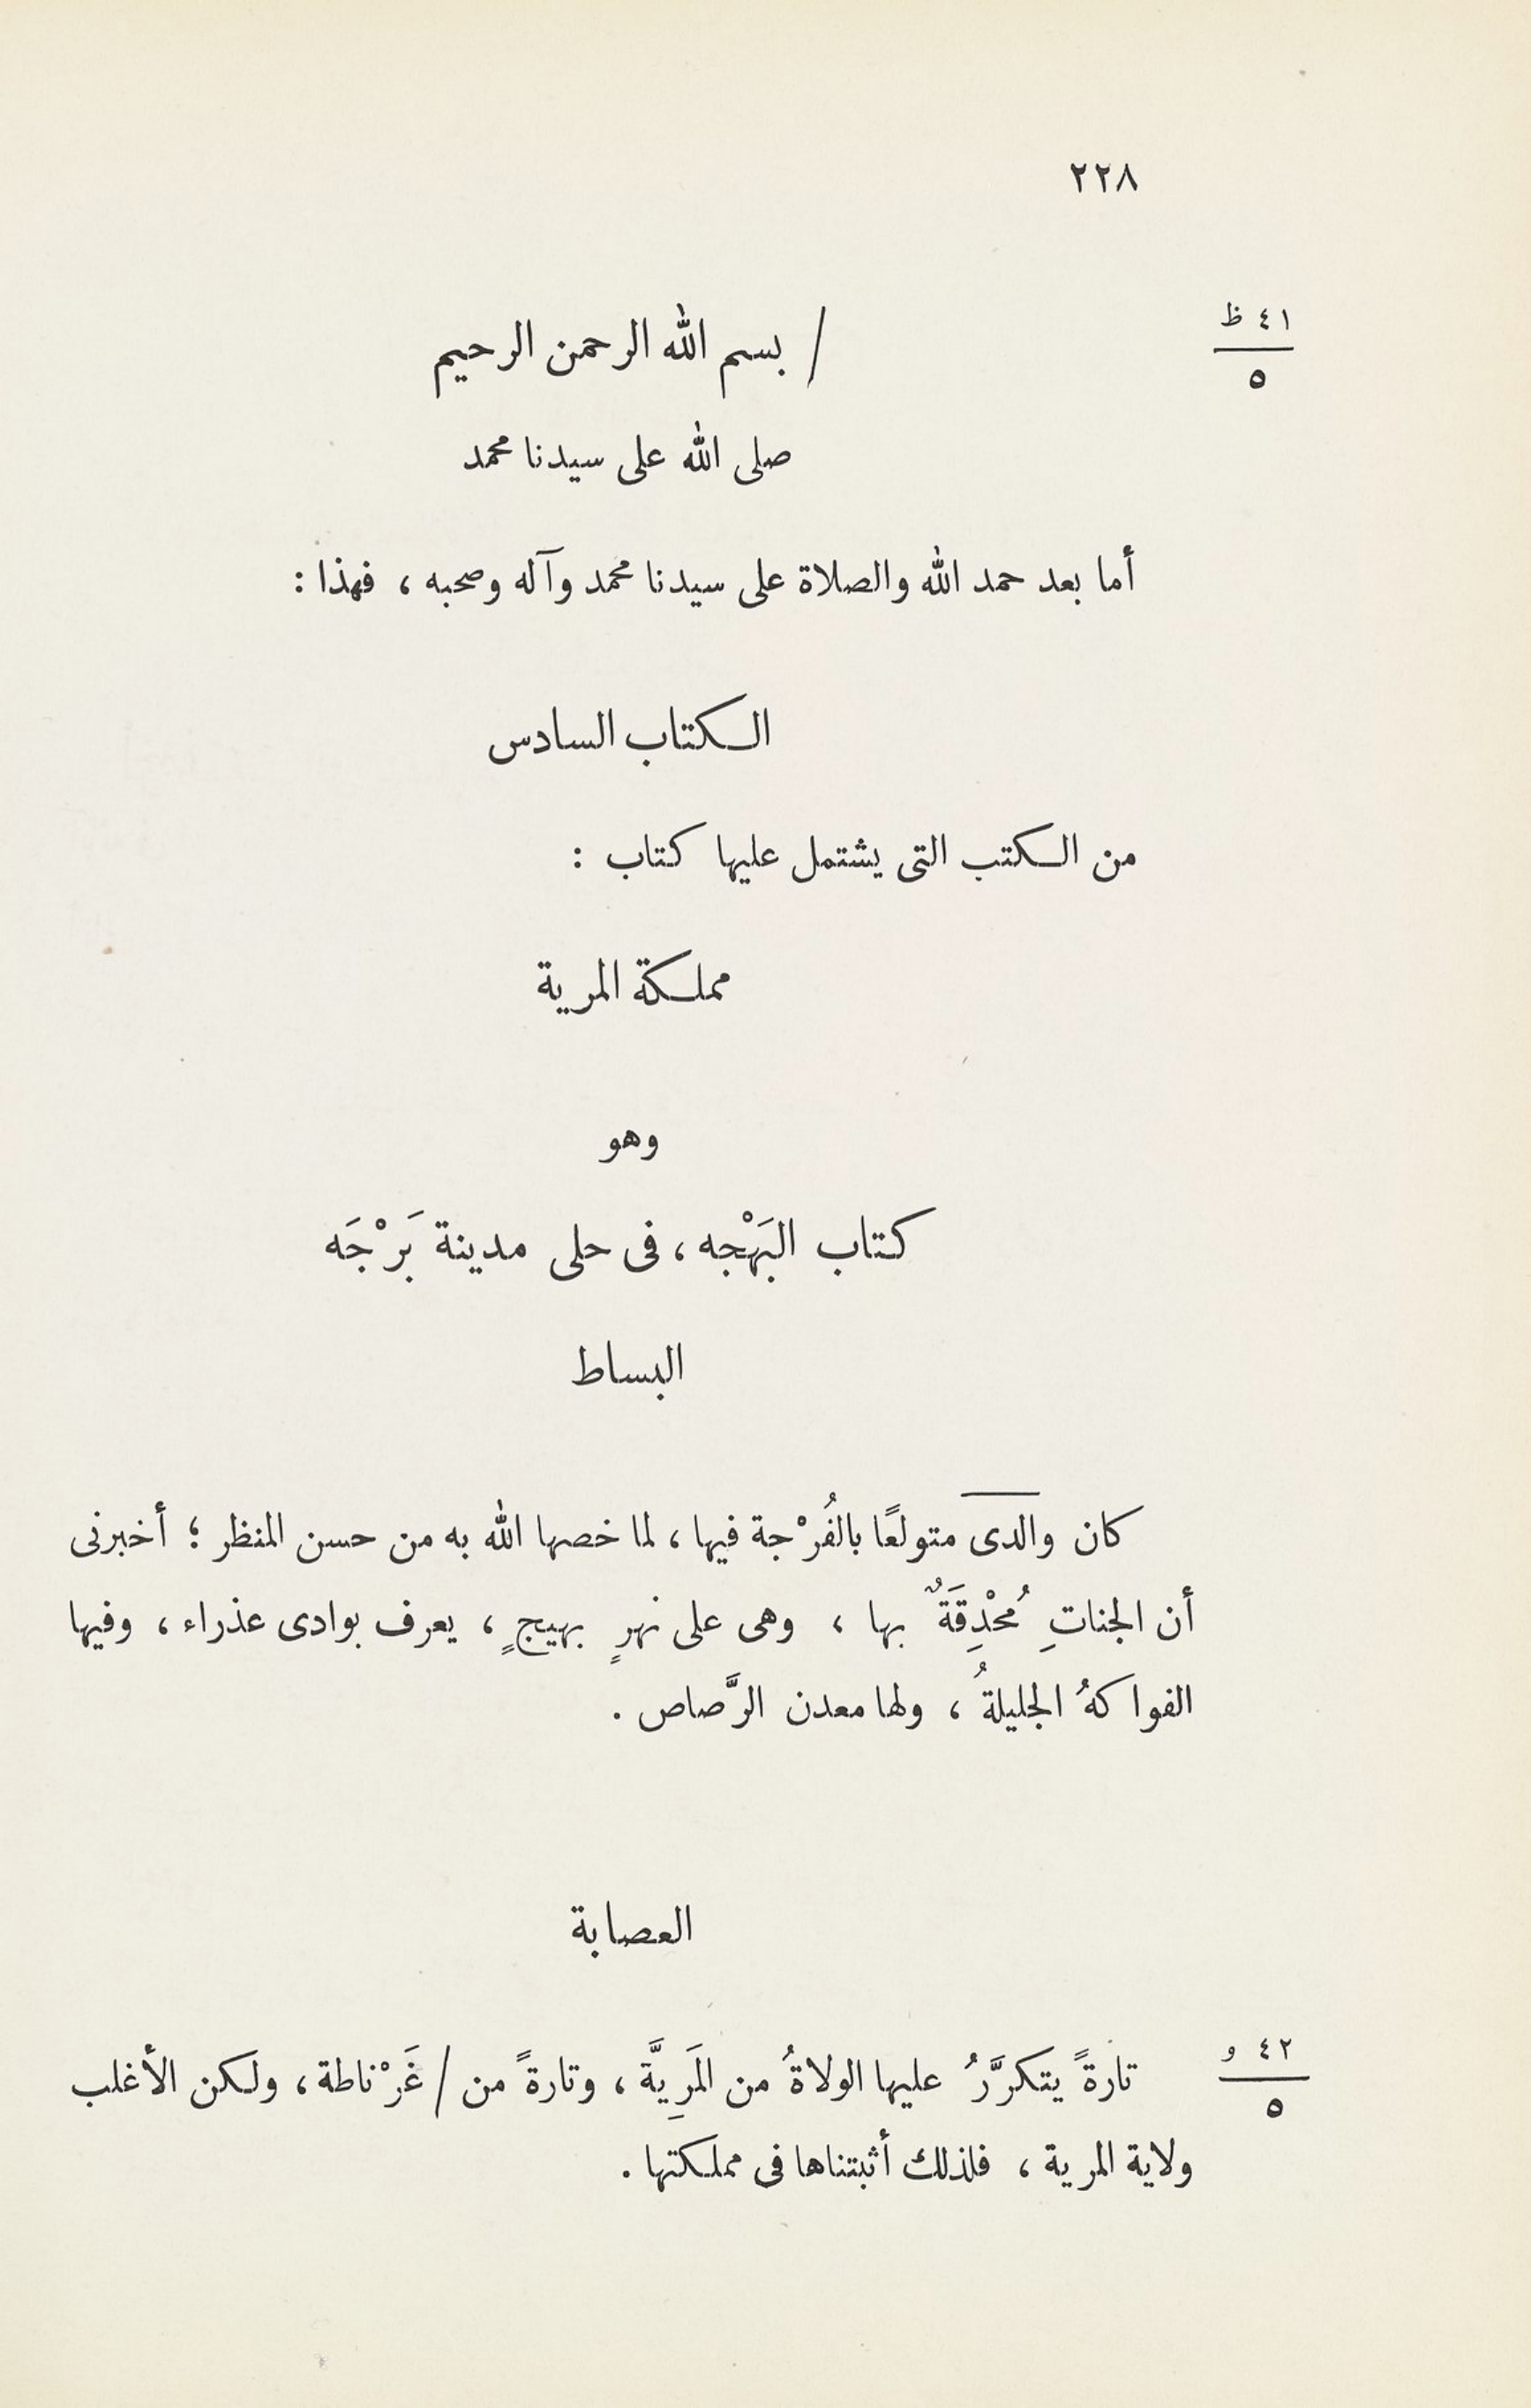 ٢٢٨
٤١ ظ
٥
/ بسم الله الرحمن الرحيم
صلى الله على سيدنا محمد
أما بعد حمد الله والصلاة على سيدنا محمد وآله وصحبه ، فهذا :
الكتاب السادس
من الكتب التى يشتمل عليها كتاب :
مملكة المرية
وهو
كتاب البَهْجه ، فى حلى مدينة بَرْجَه
البساط
كان والدى متولعًا بالفُرْجة فيها ، لما خصها الله به من حسن المنظر ؛ أخبرنى
أن الجناتِ مُحْدِقَةٌ بها ، وهى على نهرٍ بهيجٍ ، يعرف بوادى عذراء ، وفيها
الفواكهُ الجليلةُ ، ولها معدن الرَّصاص .
العصابة
٤٢ و
٥
تارةً يتكرَّرُ عليها الولاةُ من المَرِيَّة ، وتارةً من / غَرْناطة ، ولكن الأغلب
ولاية المرية ، فلذلك أثبتناها فى مملكتها .